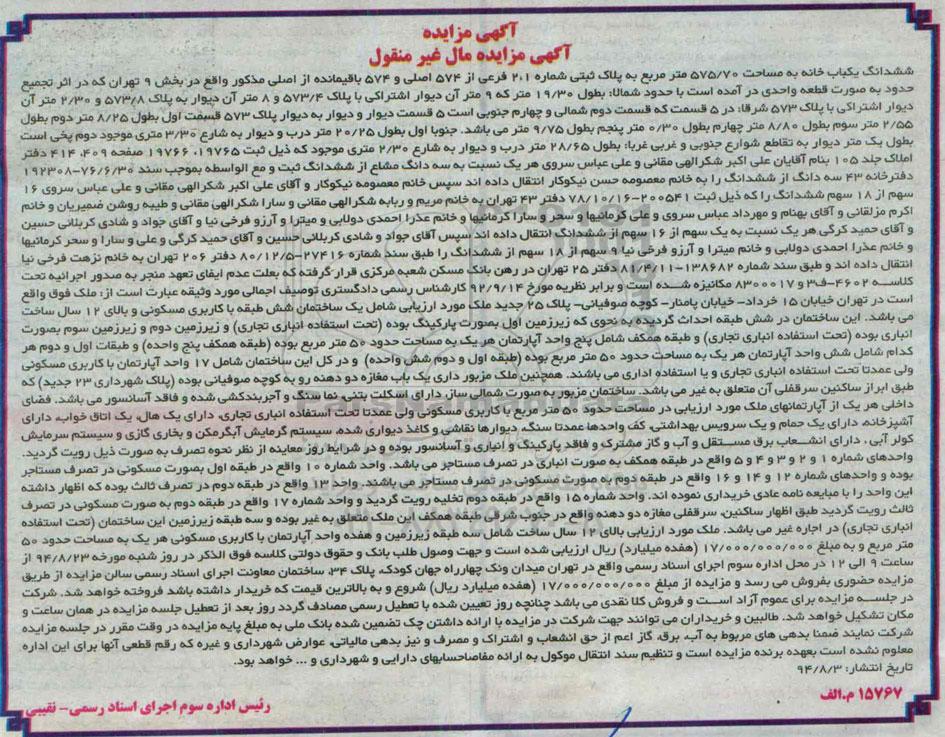 آگهی مزایده
آگهی مزایده مال غیر منقول
ششدانگ یکباب خانه به مساحت ۵۷۵/۷۰ متر مربع به پلاک ثبتی شماره ۲،۱ فرعی از ۵۷۴ اصلی و ۵۷۴ باقیمانده از اصلی مذکور واقع در بخش ۹ تهران که در اثر تجمیع
حدود به صورت قطعه واحدی در آمده است با حدود شمالا: بطول ۱۹/۳۰ متر که ۹ متر آن دیوار اشتراکی با پلاک ۵۷۳/۴ و ۸ متر آن دیوار به پلاک ۵۷۳/۸ و ۲/۳۰ متر آن
دیوار اشتراکی با پلاک ۵۷۳ شرقا: در ۵ قسمت که قسمت دوم شمالی و چهارم جنوبی است ۵ قسمت دیوار و دیوار به دیوار پلاک ۵۷۳ قسمت اول بطول ۸/۲۵ متر دوم بطول
۲/۵۵ متر سوم بطول ۸/۸۰ متر چهارم بطول ۰/۳۰ متر پنجم بطول ۹/۷۵ متر می باشد. جنوبا اول بطول ۲۰/۲۵ متر درب و دیوار به شارع ۳/۳۰ متری موجود دوم پخی است
بطول یک متر دیوار به تقاطع شوارع جنوبی و غربی غربا: بطول ۲۸/۶۵ متر درب و دیوار به شارع ۲/۳۰ متری موجود که ذیل ثبت ۱۹۷۶۵، ۱۹۷۶۶ صفحه ۴۰۹، ۴۱۴ دفتر
املاک جلد ۱۰۵ بنام آقایان علی اکبر شکرالهی مقانی و علی عباس سروی هر یک نسبت به سه دانگ مشاع از ششدانگ ثبت و مع الواسطه بموجب سند ۷۶/۶/۳۰-۱۹۲۳۰۸
دفترخانه ۴۳ سه دانگ از ششدانگ را به خانم معصومه حسن نیکوکار انتقال داده اند سپس خانم معصومه نیکوکار و آقای علی اکبر شکرالهی مقانی و علی عباس سروی ۱۶
سهم از ۱۸ سهم ششدانگ را که ذیل ثبت ۲۰۰۵۴۱-۷۸/۱۰/۱۶ دفتر ۴۳ تهران به خانم مریم و ربابه شکرالهی مقانی و سارا شکرالهی مقانی و طیبه روشن ضمیریان و خانم
اکرم مزلقانی و آقای بهنام و مهرداد عباس سروی و علی کرمانیها و سحر و سارا کرمانیها و خانم عذرا احمدی دولابی و میترا و آرزو فرخی نیا و آقای جواد و شادی کربلائی حسین
و آقای حمید کرگی هر یک نسبت به یک سهم از ۱۶ سهم از ششدانگ انتقال داده اند سپس آقای جواد و شادی کربلائی حسین و آقای حمید کرگی و علی و سارا و سحر کرمانیها
و خانم عذرا احمدی دولابی و خانم میترا و آرزو فرخی نیا ۹ سهم از ۱۸ سهم از ششدانگ را طبق سند شماره ۲۷۴۱۶-۸۰/۱۲/۵ دفتر ۲۰۶ تهران به خانم نزهت فرخی نیا
انتقال داده اند و طبق سند شماره ۱۳۸۶۸۲-۸۱/۴/۱۱ دفتر ۲۵ تهران در رهن بانک مسکن شعبه مرکزی قرار گرفته که بعلت عدم ایفای تعهد منجر به صدور اجرائیه تحت
کلاسه ۴۶۰۲-ف۳ و ۸۳۰۰۰۱۷ مکانیزه شده است و برابر نظریه مورخ ۹۲/۹/۱۴ کارشناس رسمی دادگستری توصیف اجمالی مورد وثیقه عبارت است از: ملک فوق واقع
است در تهران خیابان ۱۵ خرداد- خیابان پامنار- کوچه صوفیانی- پلاک ۲۵ جدید ملک مورد ارزیابی شامل یک ساختمان شش طبقه با کاربری مسکونی و بالای ۱۲ سال ساخت
می باشد. این ساختمان در شش طبقه احداث گردیده به نحوی که زیرزمین اول بصورت پارکینگ بوده (تحت استفاده انباری تجاری) و زیرزمین دوم و زیرزمین سوم بصورت
انباری بوده (تحت استفاده انباری تجاری) و طبقه همکف شامل پنج واحد آپارتمان هر یک به مساحت حدود ۵۰ متر مربع بوده (طبقه همکف پنج واحده) و طبقات اول و دوم هر
کدام شامل شش واحد آپارتمان هر یک به مساحت حدود ۵۰ متر مربع بوده (طبقه اول و دوم شش واحده) و در کل این ساختمان شامل ۱۷ واحد آپارتمان با کاربری مسکونی
ولی عمدتا تحت استفاده انباری تجاری و یا استفاده اداری می باشند. همچنین ملک مزبور داری یک باب مغازه دو دهنه رو به کوچه صوفیانی بوده (پلاک شهرداری ۲۳ جدید) که
طبق ابراز ساکنین سرقفلی آن متعلق به غیر می باشد. ساختمان مزبور به صورت شمالی ساز، دارای اسکلت بتنی، نما سنگ و آجربندکشی شده و فاقد آسانسور می باشد. فضای
داخلی هر یک از آپارتمانهای ملک مورد ارزیابی در مساحت حدود ۵۰ متر مربع با کاربری مسکونی ولی عمدتا تحت استفاده انباری تجاری، دارای یک هال، یک اتاق خواب، دارای
آشپزخانه، دارای یک حمام و یک سرویس بهداشتی، کف واحدها عمدتا سنگ، دیوارها نقاشی و کاغذ دیواری شده، سیستم گرمایش آبگرمکن و بخاری گازی و سیستم سرمایش
کولر آبی، دارای انشعاب برق مستقل و آب و گاز مشترک و فاقد پارکینگ و انباری و آسانسور بوده و در شرایط روز معاینه از نظر نحوه تصرف به صورت ذیل رویت گردید.
واحدهای شماره ۱ و ۲ و ۳ و ۴ و ۵ واقع در طبقه همکف به صورت انباری در تصرف مستاجر می باشد. واحد شماره ۱۰ واقع در طبقه اول بصورت مسکونی در تصرف مستاجر
بوده و واحدهای شماره ۱۲ و ۱۴ و ۱۶ واقع در طبقه دوم به صورت مسکونی در تصرف مستاجر می باشند. واحد ۱۳ واقع در طبقه دوم در تصرف ثالث بوده که اظهار داشته
این واحد را با مبایعه نامه عادی خریداری نموده اند. واحد شماره ۱۵ واقع در طبقه دوم تخلیه رویت گردید و واحد شماره ۱۷ واقع در طبقه دوم به صورت مسکونی در تصرف
ثالث رویت گردید طبق اظهار ساکنین، سرقفلی مغازه دو دهنه واقع در جنوب شرقی طبقه همکف این ملک متعلق به غیر بوده و سه طبقه زیرزمین این ساختمان (تحت استفاده
انباری تجاری) در اجاره غیر می باشد. ملک مورد ارزیابی بالای ۱۲ سال ساخت شامل سه طبقه زیرزمین و هفده واحد آپارتمان با کاربری مسکونی هر یک به مساحت حدود ۵۰
متر مربع و به مبلغ ۱۷/۰۰۰/۰۰۰/۰۰۰ (هفده میلیارد) ریال ارزیابی شده است و جهت وصول طلب بانک و حقوق دولتی کلاسه فوق الذکر در روز شنبه مورخه ۹۴/۸/۲۳ از
ساعت ۹ الی ۱۲ در محل اداره سوم اجرای اسناد رسمی واقع در تهران میدان ونک چهارراه جهان کودک، پلاک ۳۴، ساختمان معاونت اجرای اسناد رسمی سالن مزایده از طریق
مزایده حضوری بفروش می رسد و مزایده از مبلغ ۱۷/۰۰۰/۰۰۰/۰۰۰ (هفده میلیارد ریال) شروع و به بالاترین قیمت که خریدار داشته باشد فروخته خواهد شد. شرکت
در جلسه مزایده برای عموم آزاد است و فروش کلا نقدی می باشد چنانچه روز تعیین شده با تعطیل رسمی مصادف گردد روز بعد از تعطیل جلسه مزایده در همان ساعت و
مکان تشکیل خواهد شد. طالبین و خریداران می توانند جهت شرکت در مزایده با ارائه داشتن چک تضمین شده بانک ملی به مبلغ پایه مزایده در وقت مقرر در جلسه مزایده
شرکت نمایند ضمنا بدهی های مربوط به آب، برق، گاز اعم از حق انشعاب و اشتراک و مصرف و نیز بدهی مالیاتی، عوارض شهرداری و غیره که رقم قطعی آنها برای این اداره
معلوم نشده است بعهده برنده مزایده است و تنظیم سند انتقال موکول به ارائه مفاصاحسابهای دارایی و شهرداری و ... خواهد بود.
تاریخ انتشار: ۹۴/۸/۳
۱۵۷۶۷ م.الف
رئیس اداره سوم اجرای اسناد رسمی- نقیبی